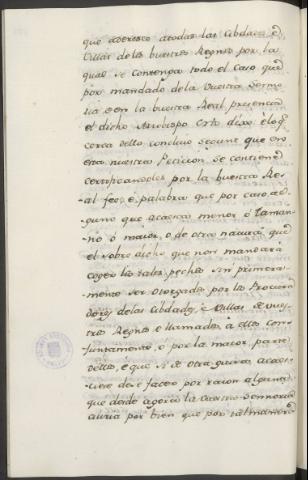 que aderesco a todas las Cibdades é
Villas de los buestros Regnos por la
qual se Contenga todo el Caso que
por mandado de la Vuestra Sermo
ria e en la buestra Real presencia
el dicho Arzobispo esto dixo, é lo q.e
cerca dello concluió segunt que en
esta nuestra Peticion se contiene
certificandoles por la buestra Re-
al fee, é palabra que por caso al-
guno que acaesca menor ó taman-
no ó maior, o de otra natura que
el sobre dicho que non mandará
coger los tales pechos sin primera-
mente ser otorgados por los Procura-
dores de las Cibdades, é Villas de vues-
tros Regnos é llamados a ellos Con-
juntamente, o por la maior parte
dellos, é que si de otra guisa acaes-
ciese de se facer por razon alguna
que desde agora la Vuestra Sennoria
auria por bien que por tal manera